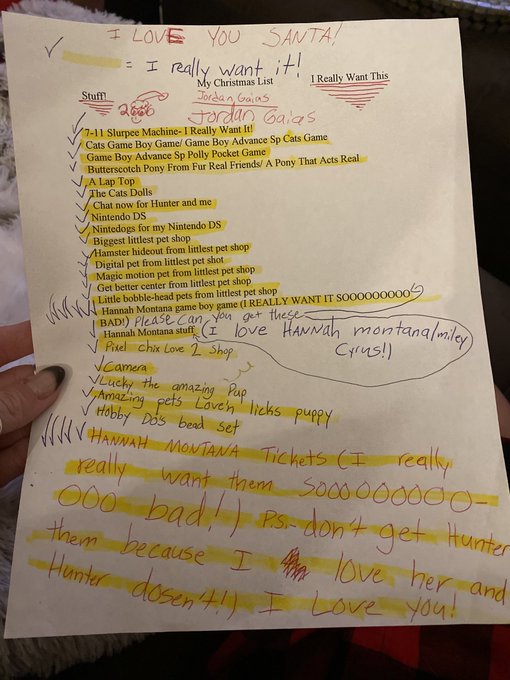 I LOVE YOU SANTA!
= I really want it!
My Christmas List
I Really Want This
Stuff!
Jordan Gaias
Jordan Gaias
7-11 Slurpee Machine- I Really Want It!
Cats Game Boy Game/ Game Boy Advance Sp Cats Game
Game Boy Advance Sp Polly Pocket Game
Butterscotch Pony From Fur Real Friends/ A Pony That Acts Real
A Lap Top
The Cats Dolls
Chat now for Hunter and me
Nintendo DS
Nintedogs for my Nintendo DS
Biggest littlest pet shop
Hamster hideout from littlest pet shop
Digital pet from littlest pet shot
Magic motion pet from littlest pet shop
Get better center from littlest pet shop
Little bobble-head pets from littlest pet shop
Hannah Montana game boy game (I REALLY WANT IT SOOOOOOOOO
BAD!) Please Can you get these
Hannah Montana stuff (I love HANNAH montana/miley
Cyrus!)
Pixel chix Love 2 Shop
Camera
Lucky the amazing Pup
Amazing pets Love'n licks puppy
Hobby Do's bead set
HANNAH MONTANA Tickets (I really
really want them SOOOOOOOOO-
OOO bad!) P.S.- don't get Hunter
them because I love her and
Hunter dosen't!) I Love You!